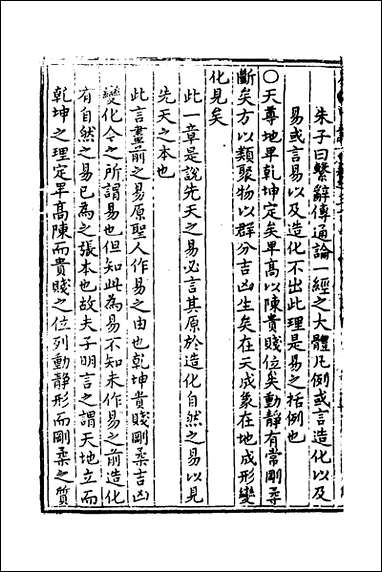 朱子曰繫辭傳通論一經之大體凡例或言造化以及
易或言易以及造化不出此理是易之括例也
〇天尊地卑乾坤定矣卑高以陳貴賤位矣動靜有常剛柔
斷矣方以類聚物以群分吉凶生矣在天成象在地成形變
化見矣
此一章是說先天之易必言其原於造化自然之易以見
先天之本也
此言畫前之易原聖人作易之由也乾坤貴賤剛柔吉凶
變化今之所謂易也但知此為易不知未作易之前造化
有自然之易已為之張本也故夫子明言之謂天地立而
乾坤之理定卑高陳而貴賤之位列動靜形而剛柔之質